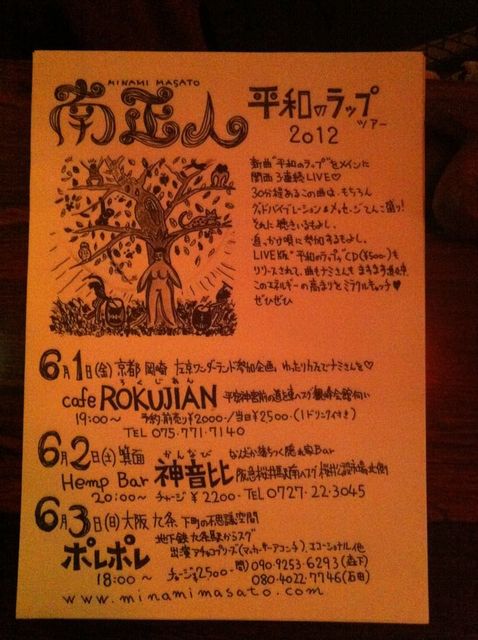 MINAMI MASATO
南正人
平和のラップ
ツアー
2012
新曲"平和のラップ"をメインに
関西3連続LIVE♡
30分程あるこの曲は、もちろん
グッドバイブレーション&メッセージてんこ盛り!
それに聴きいるもよし、
追っかけ唄に参加するもよし。
LIVE版"平和のラップ"CD(¥500-)も
リリースされて、曲もナミさんもますます
このエネルギーの高まりとミラクルキャッチ♥
ぜひぜひ
6月1日(金)京都 岡崎 左京ワンダーランド参加企画。ゆったりカフェでナミさんを♡
cafe ROKUJIAN
ろくじあん
平安神宮前の道を東へスグ 観峰会館向い
19:00〜 予約・前売り¥2000-/当日¥2500-(1ドリンク付き)
TEL 075.771.7140
6月2日(土)箕面 なんだか落ちつく隠れ家Bar
Hemp Bar 神音比
かんなび
阪急桜井駅南へスグ 桜井公設市場北側
20:00〜 チャージ ¥2200- TEL 0727.22.3045
6月3日(日)大阪 九条 下町の不思議空間
ポレポレ
地下鉄九条駅からスグ
出演 アチョコブラーズ(マッカーサーアコンチ)、エコーショナル、他
18:00〜 チャージ¥2500- 問)090.9253-6293(森下)
080-4022-7746(石田)
www.minamimasato.com